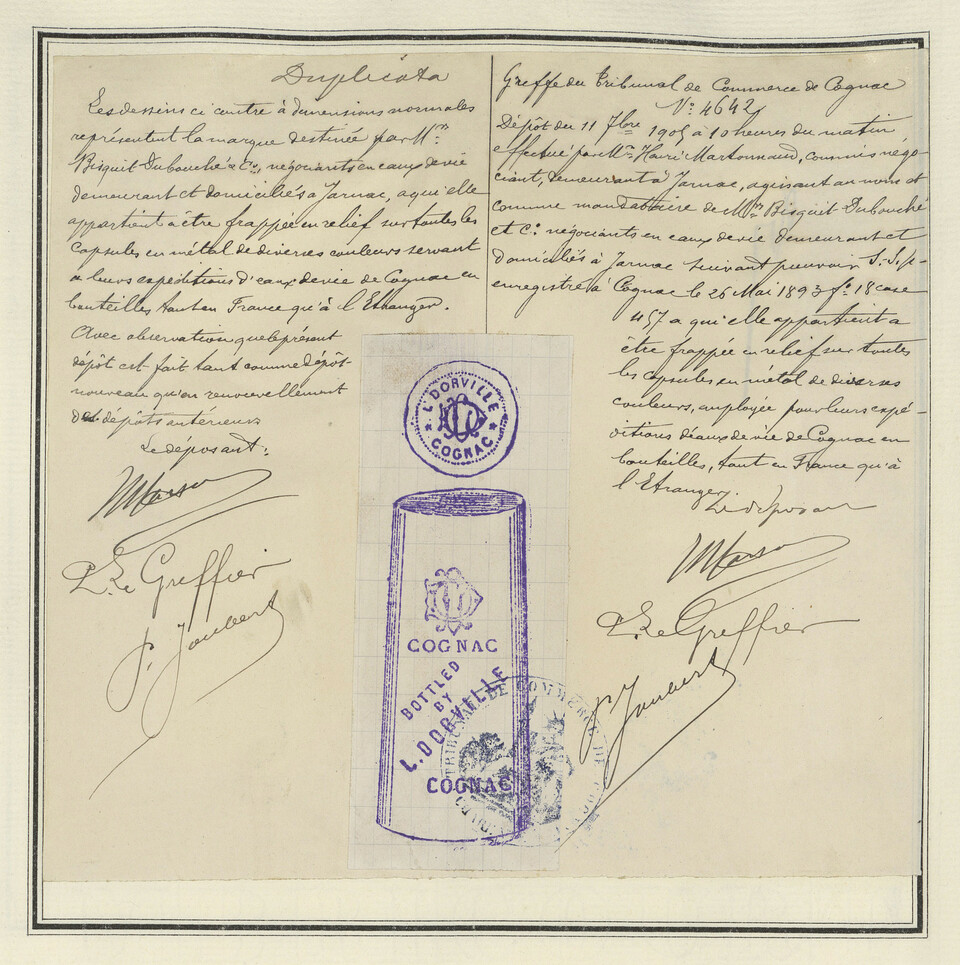 Duplicata
Les dessins ci contre à dimensions normales
représentent la marque destinée par M.rs
Bisquit Dubouché & C.ie négociants en eaux de vie
demeurant et domiciliés à Jarnac, a qui elle
appartient à être frappée en relief sur toutes les
capsules en métal de diverses couleurs servant
a leurs expéditions d'eaux de vie de Cognac en
bouteilles tant en France qu'à l'Etranger.
Avec observation que le présent
dépôt est fait tant comme dépôt
nouveau qu'en renouvellement
de dépôts antérieurs
Le déposant:
P. Le Greffier
P. Joubert
Greffe du Tribunal de Commerce de Cognac
N° 4642
Dépôt du 11 7bre 1905 à 10 heures du matin
effectué par Mr. Henri Martonnaud, commis négo-
ciant, demeurant à Jarnac, agissant au nom et
comme mandataire de M.rs Bisquit Dubouché
et C.ie négociants en eaux de vie demeurant et
domiciliés à Jarnac suivant pouvoir S.S.p.
enregistré à Cognac le 26 Mai 1893 f° 18 case
457 a qui elle appartient a
être frappée en relief sur toutes
les capsules en métal de diverses
couleurs, employée pour leurs expé-
ditions d'eaux de vie de Cognac en
bouteilles, tant en France qu'à
l'Etranger.
Le déposant
P. Le Greffier
P. Joubert
L. DORVILLE
COGNAC
COGNAC
BOTTLED
BY
L. DORVILLE
COGNAC
TRIBUNAL DE COMMERCE DE COGNAC